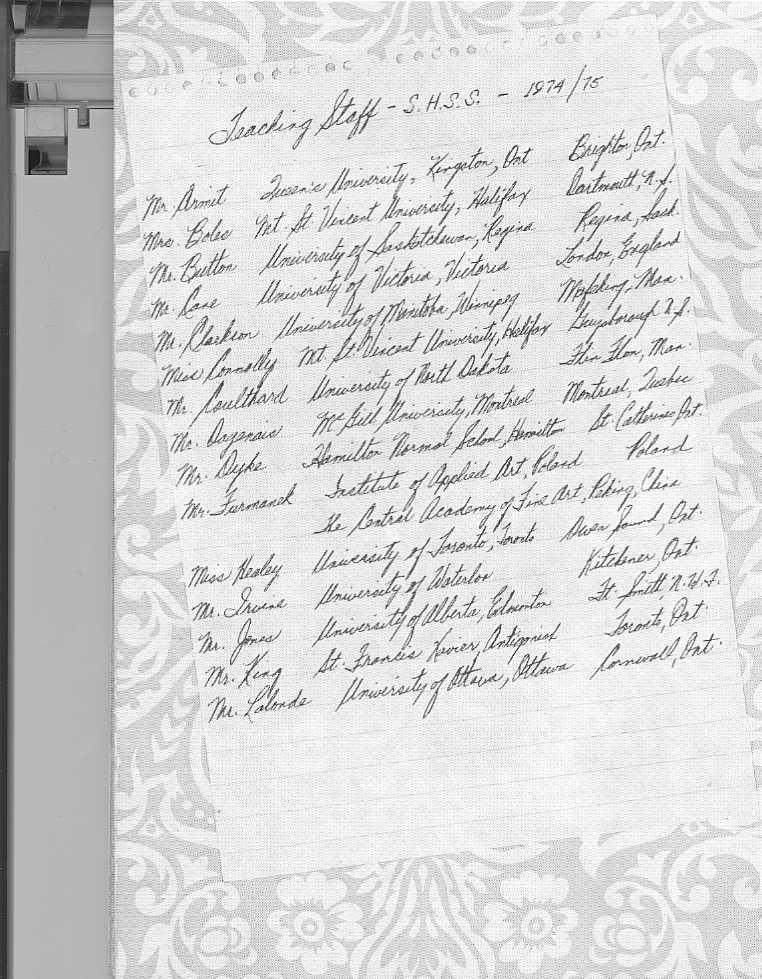 Teaching Staff - S.H.S.S. - 1974/75
Mr. Armit Queen's University, Kingston, Ont Brighton, Ont.
Mrs. Boles Mt. St. Vincent University, Halifax Dartmouth, N.S.
Mr. Button University of Saskatchewan, Regina Regina, Sask.
Mr. Cane University of Victoria, Victoria London, England
Mr. Clarkson University of Manitoba, Winnipeg Mafeking, Man.
Miss Connolly Mt. St. Vincent University, Halifax Guysborough N.S.
Mr. Coulthard University of North Dakota Flin Flon, Man.
Mr. Dagenais McGill University, Montreal Montreal, Quebec
Mr. Dyke Hamilton Normal School, Hamilton St. Catherines Ont.
Mr. Furmanek Institute of Applied Art, Poland Poland
The Central Academy of Fine Art, Peking, China
Miss Healey University of Toronto, Toronto Owen Sound, Ont.
Mr. Irvine University of Waterloo Kitchener, Ont.
Mr. Jones University of Alberta, Edmonton Ft. Smith, N.W.T.
Mr. King St. Francis Xavier, Antigonish Toronto, Ont.
Mr. Lalonde University of Ottawa, Ottawa Cornwall, Ont.